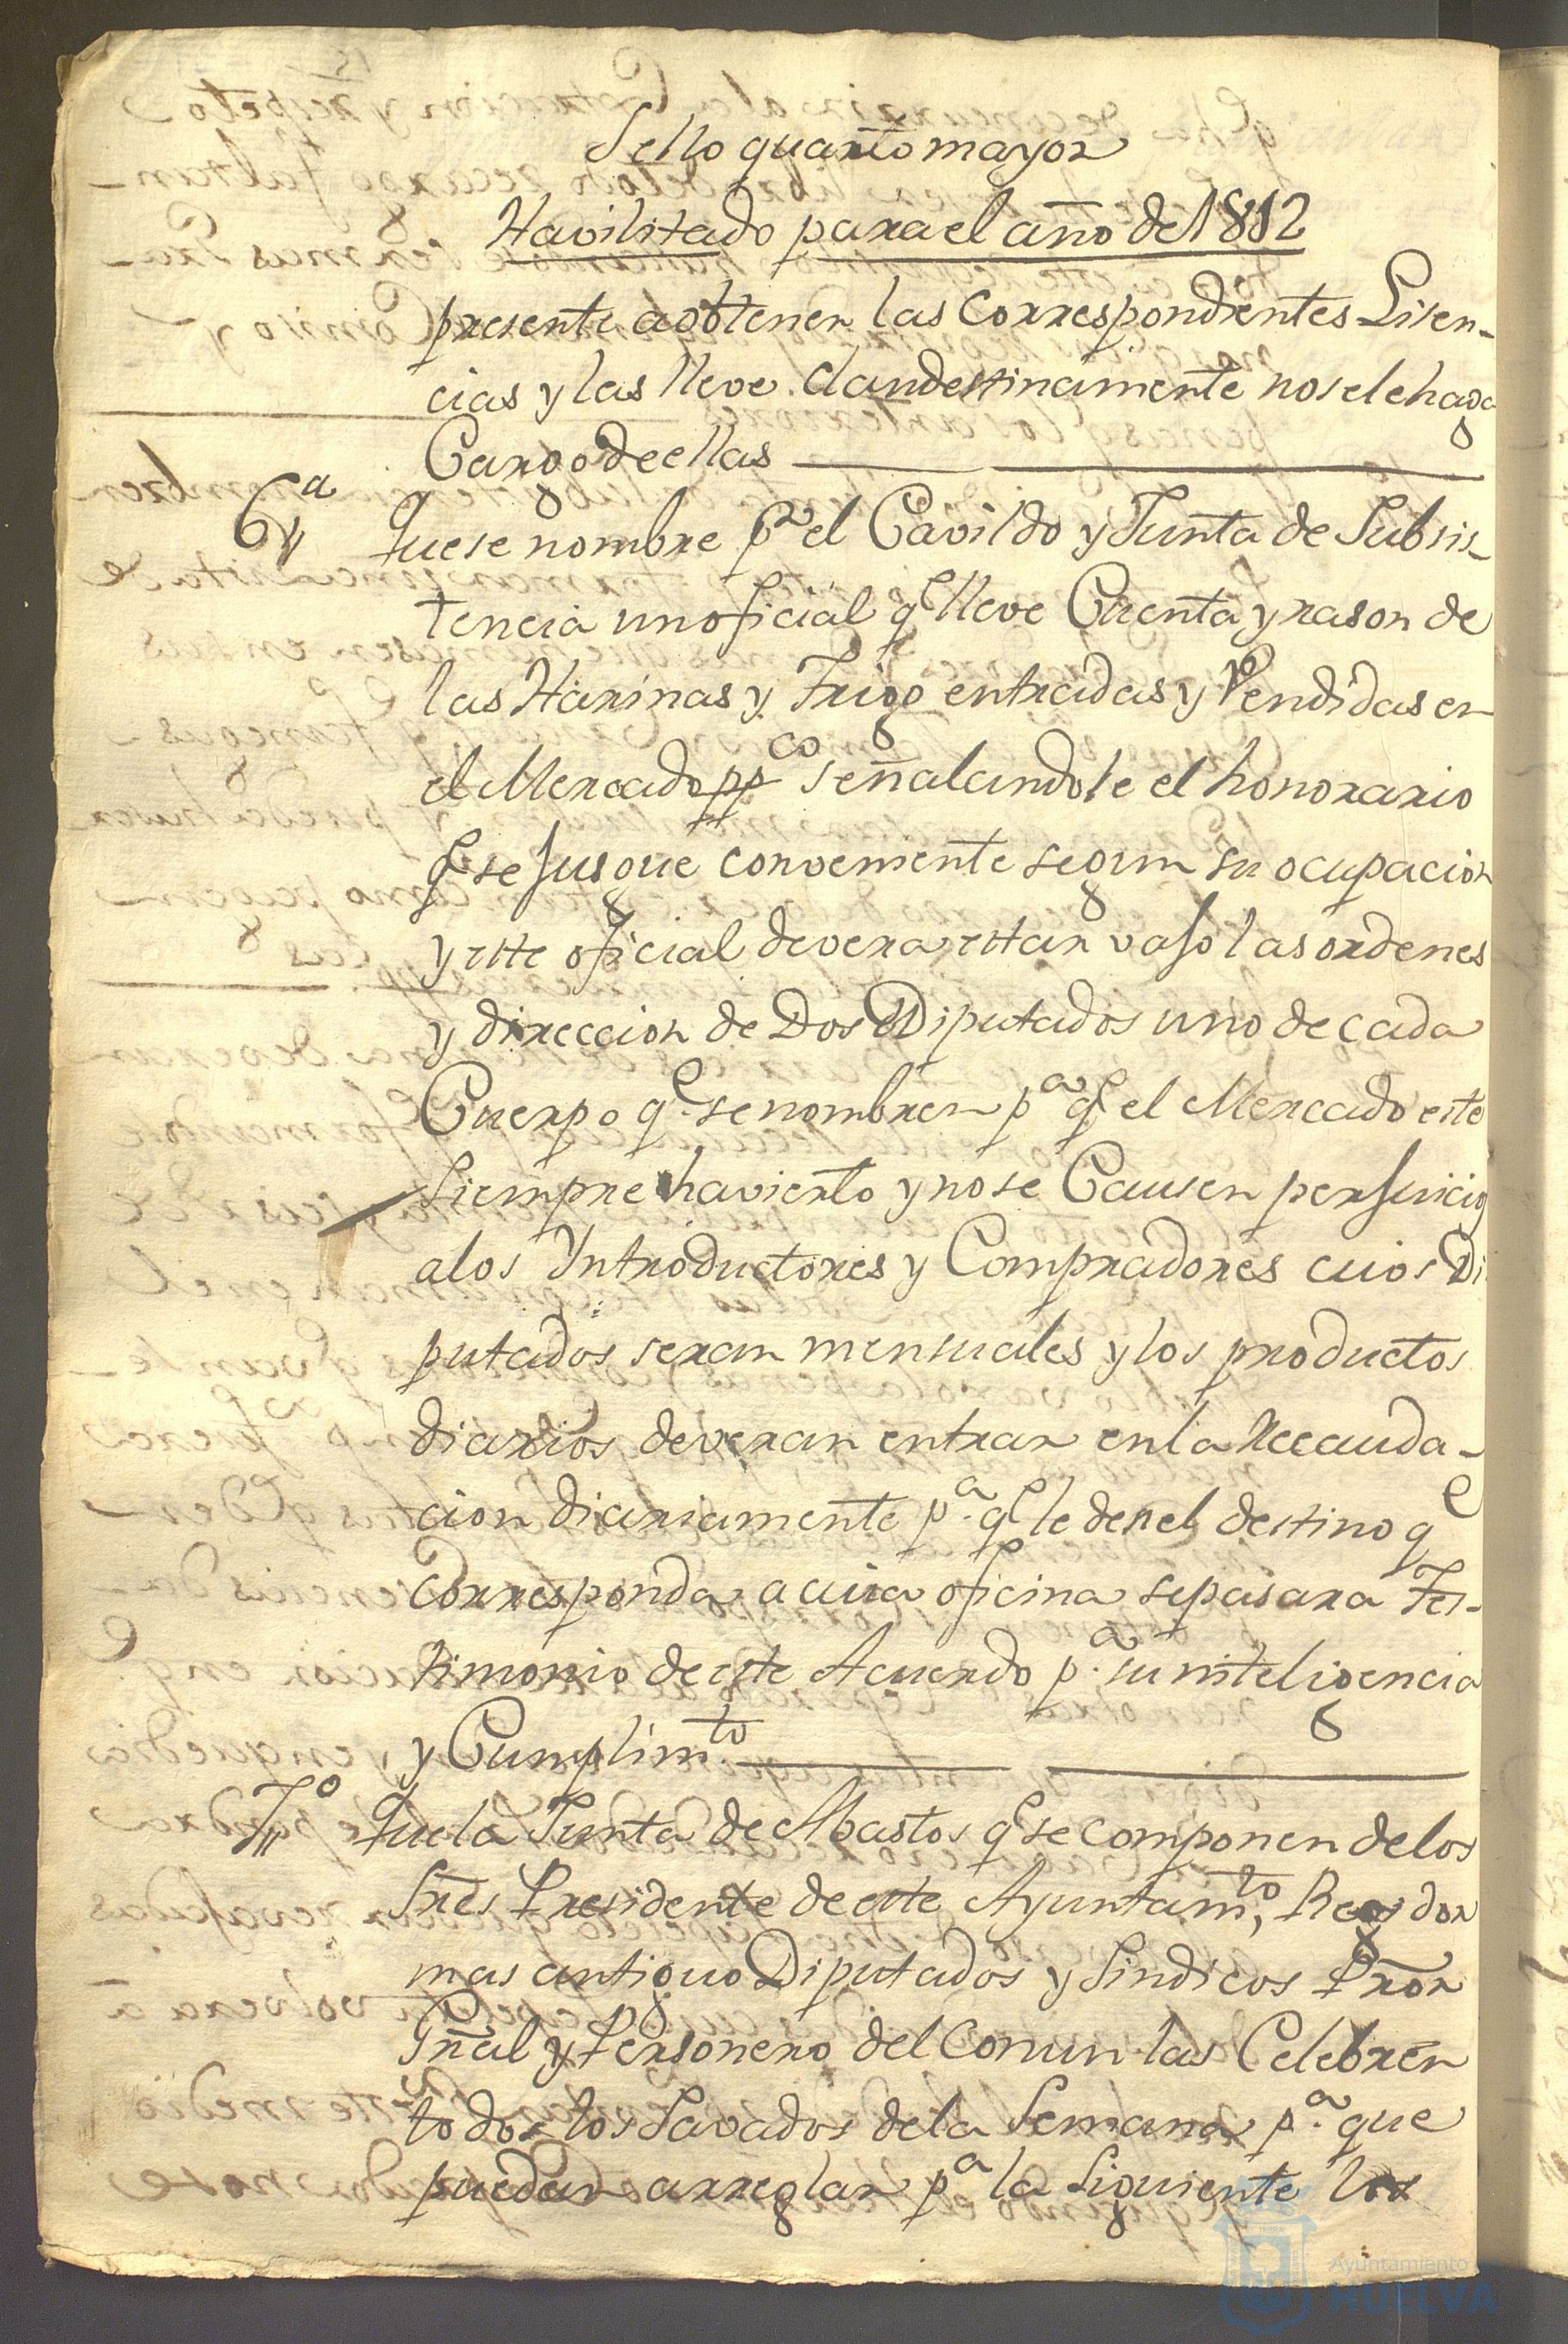 Sello quarto mayor
Havilitado para el año de 1812
presente a obtener las Correspondientes Lisen-
cias y las lleve clandestinamente no se le haga
Cargo de ellas
6ª Que se nombre pr el Cavildo y Junta de Subsis-
tencia un oficial qe lleve Cuenta y rason de
las Harinas y Trigo entradas y Vendidas en
el Mercado ppco señalandole el honorario
qe se Jusgue conveniente segun su ocupacion
y este oficial devera estar vajo las ordenes
y direccion de Dos Diputados uno de cada
Cuerpo qe se nombren pa qe el Mercado este
Siempre havierto y no se Causen perjuicio
a los Yntroductores y Compradores cuios Di
putados seran mensuales y los productos
diarios deveran entrar en la Recauda-
cion diariamente pa qe le den el destino qe
Corresponda a cuia oficina se pasara Tes-
timonio de este Acuerdo pa su inteligencia
y Cumplimto
7º Que la Junta de Abastos qe se componen de los
Sres Presidente de este Ayuntamto, Regidor
mas antiguo Diputados y Sindicos Pror
Gñal y Personero del Comun las Celebren
todos los Savados de la Semana pa que
puedan arreglar pa la Siguiente los
Ayuntamiento
HUELVA